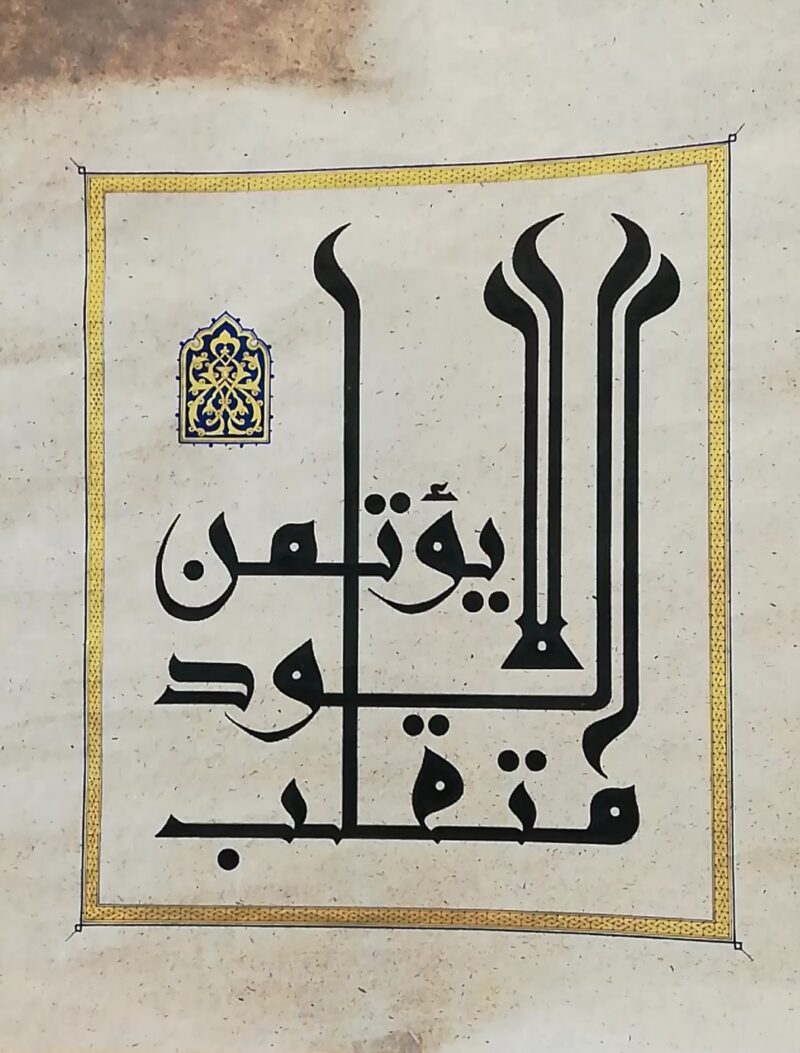 متقلب
الود
لا يؤتمن